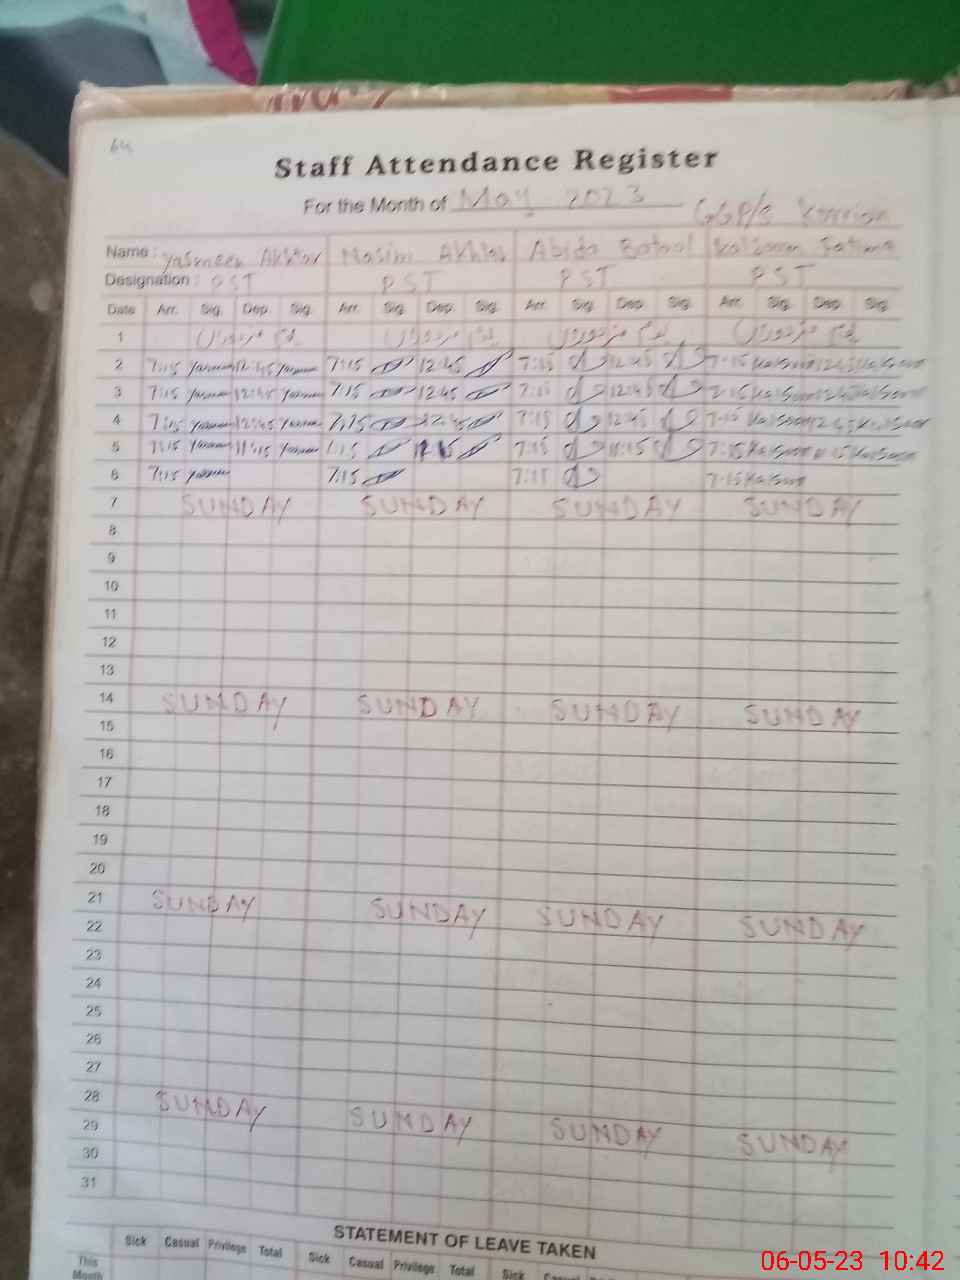 64
Staff Attendance Register
For the Month of May 2023 GGP/S
Name : Yasmeen Akhtar Nasim Akhtar Abida Batool Kalsoom Fatima
Designation : PST PST PST PST
Date Arr. Sig. Dep. Sig. Arr. Sig. Dep. Sig. Arr. Sig. Dep. Sig. Arr. Sig. Dep. Sig.
1 یوم مزدوراں یوم مزدوراں یوم مزدوراں یوم مزدوراں
2 7:15 Yasmeen 12:45 Yasmeen 7:15 12:45 7:15 12:45 7:15 Kalsoom 12:45 Kalsoom
3 7:15 Yasmeen 12:45 Yasmeen 7:15 12:45 7:15 12:45 7:15 Kalsoom 12:45 Kalsoom
4 7:15 Yasmeen 12:45 Yasmeen 7:15 12:45 7:15 12:45 7:15 Kalsoom 12:45 Kalsoom
5 7:15 Yasmeen 11:15 Yasmeen 7:15 7:15 11:15 7:15 Kalsoom 11:15 Kalsoom
6 7:15 Yasmeen 7:15 7:15 7:15 Kalsoom
7 SUNDAY SUNDAY SUNDAY SUNDAY
8
9
10
11
12
13
14 SUNDAY SUNDAY SUNDAY SUNDAY
15
16
17
18
19
20
21 SUNDAY SUNDAY SUNDAY SUNDAY
22
23
24
25
26
27
28 SUNDAY SUNDAY SUNDAY SUNDAY
29
30
31
STATEMENT OF LEAVE TAKEN
Sick Casual Privilege Total Sick Casual Privilege Total Sick Casual
This
Month
06-05-23 10:42